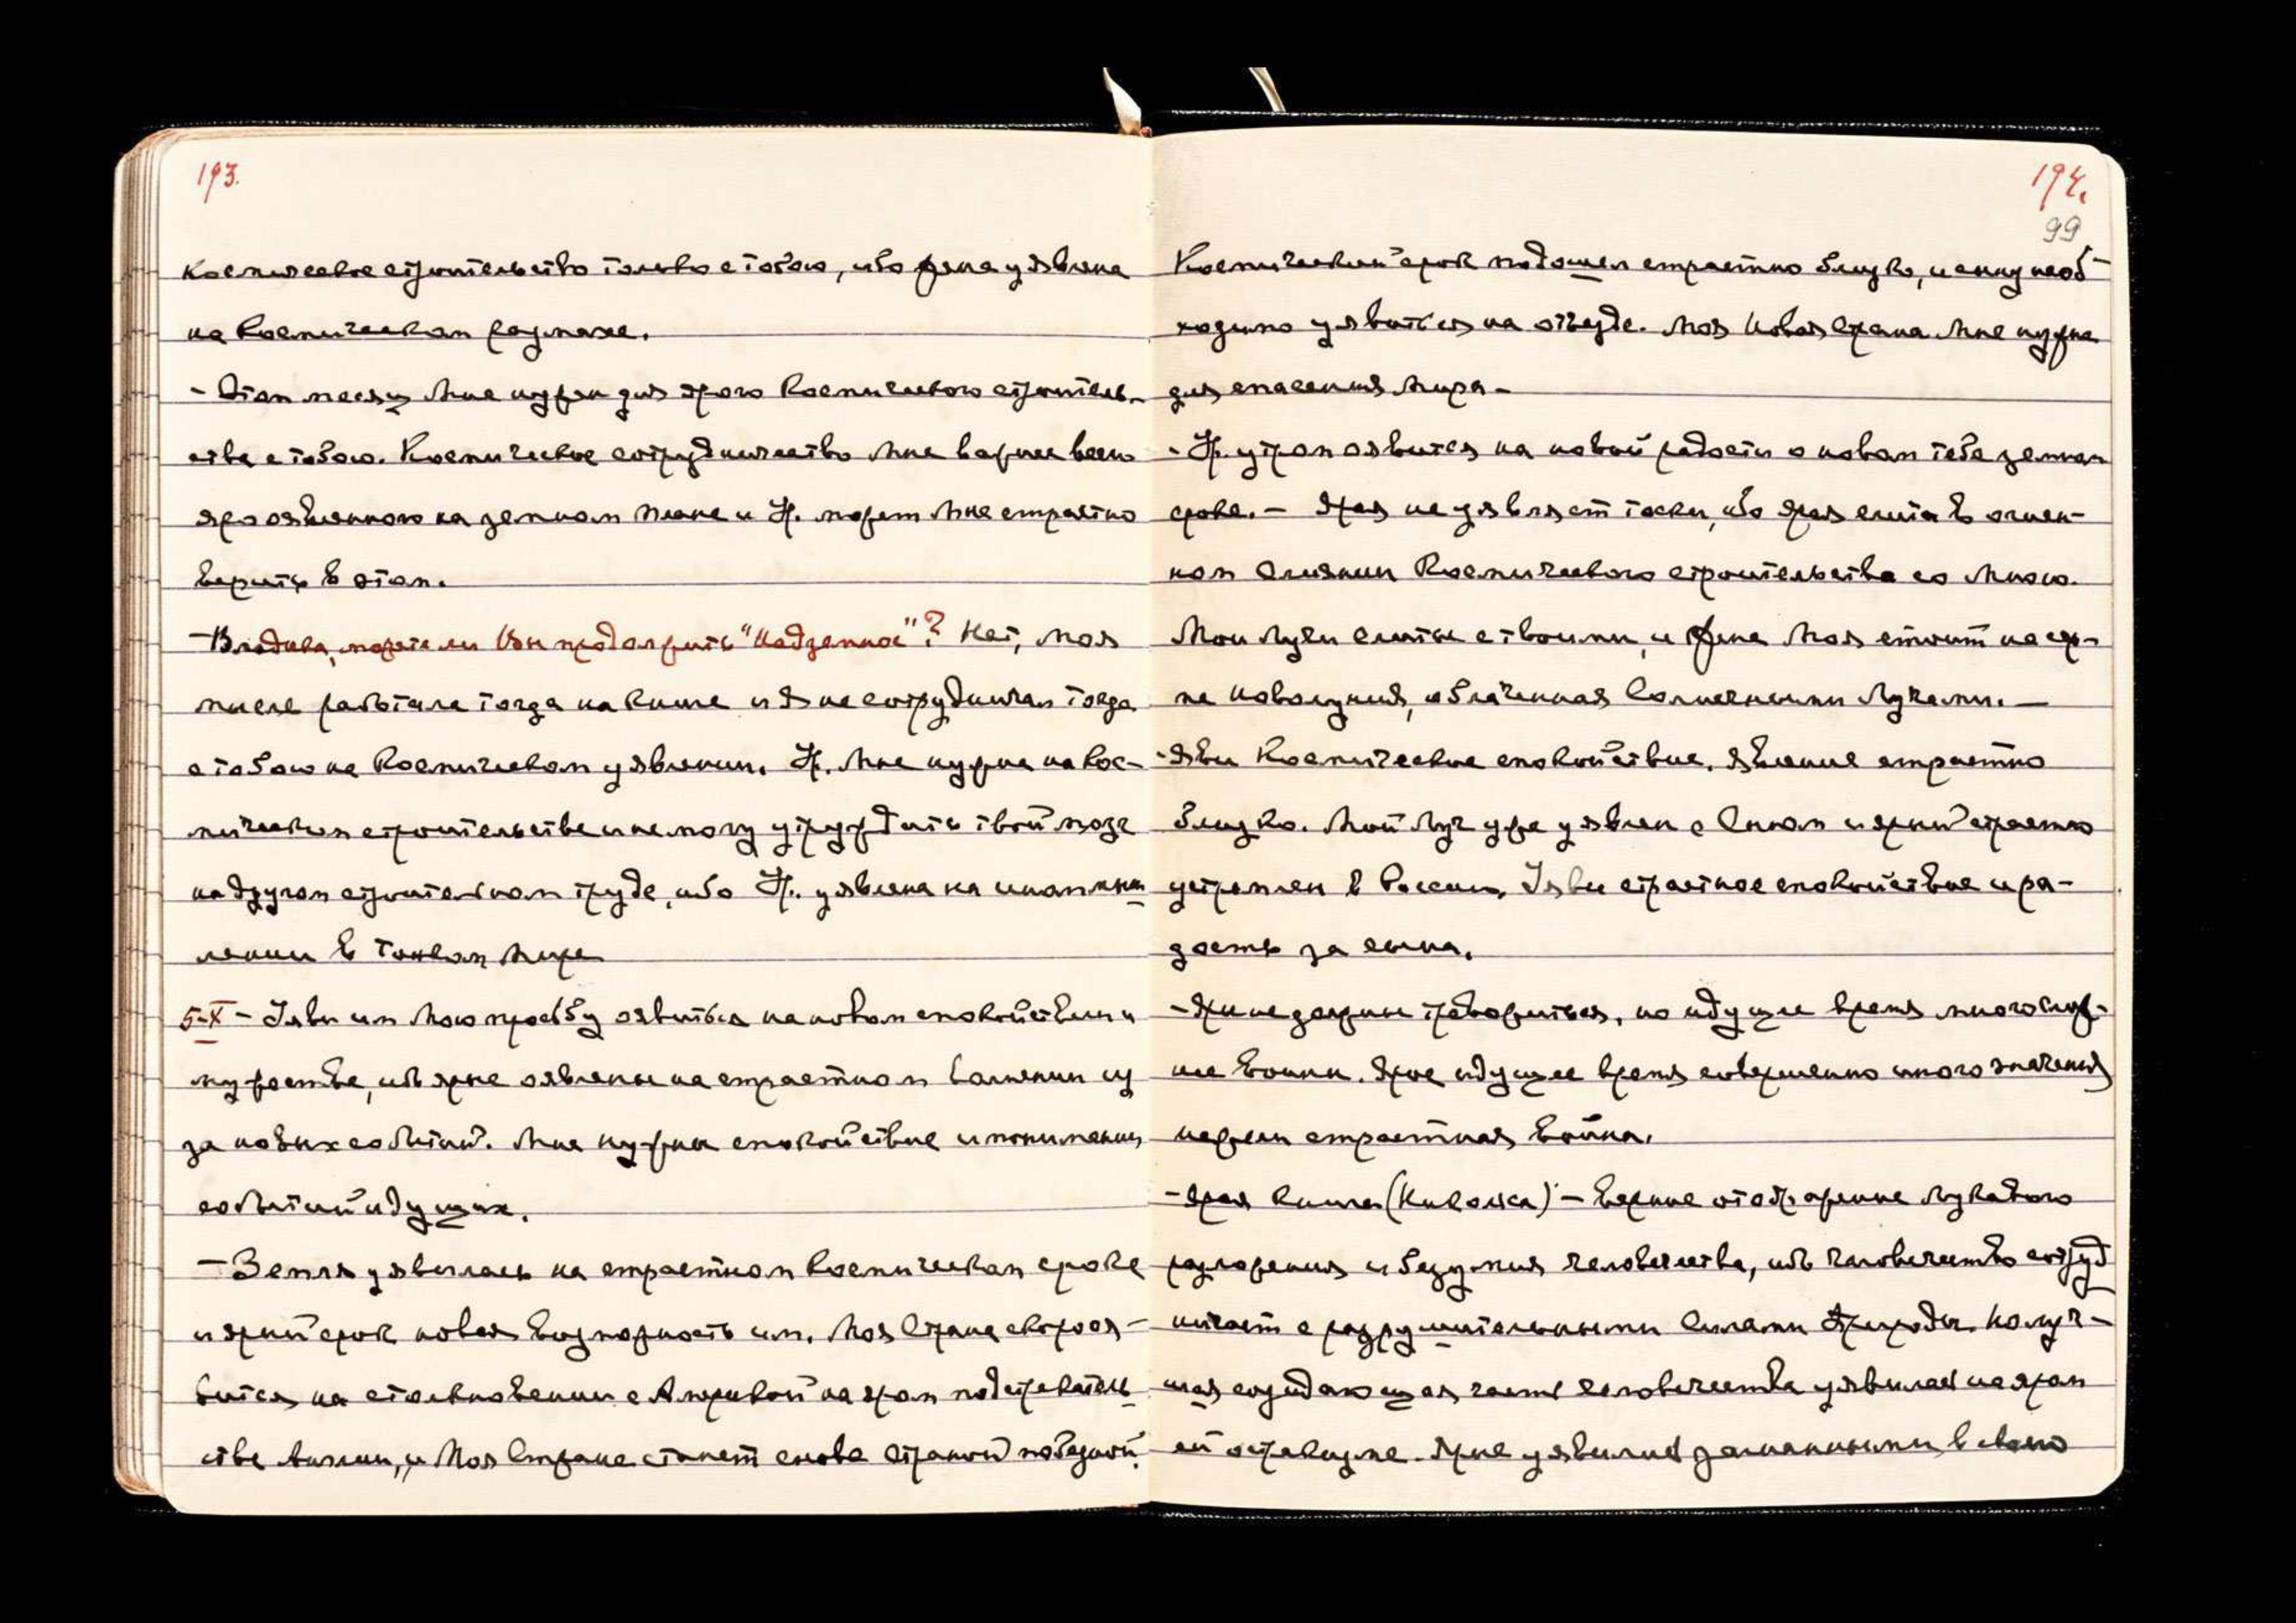 193.
космическое строительство только с тобою, ибо Жена уявлена
на космическом размахе.
- Этот месяц Мне нужен для ярого космического строитель-
ства с тобою. Космическое сотрудничество Мне важнее всего
яро оявленного на земном плане и Ур. может Мне страстно
верить в этом.
- Владыка, можете ли Вы продолжить "Надземное"? Нет, моя
мысль работала тогда на книге и Я не сотрудничал тогда
с тобою на космическом уявлении. Ур. Мне нужна на кос-
мическом строительстве и не могу утруждать твой мозг
на другом строительном труде, ибо Ур. уявлена на
в Тонком Мире
5-X - Яви им Мою просьбу оявиться на новом спокойствии и
мужестве, ибо ярые оявлены на страстном волнении из
за новых событий. Мне нужны спокойствие и понимание
событий идущих.
- Земля уявилась на страстном космическом сроке
и ярый срок новая возможность им. Моя Страна скоро оя-
вится на столкновении с Америкой на яром подстрекатель
стве Англии, и Моя Страна станет снова страной победной.
194.
99
Космический срок подошел страстно близко, и ему необ-
ходимо уявиться на отъезде. Моя Новая Страна Мне нужна
для спасения Мира -
- Ур. утром оявится на новой радости о новом тебе земном
сроке. - Ярая не уявляет тоски, ибо ярая слита в огнен-
ном слиянии космического строительства со Мною.
Мои Лучи слиты с твоими, и Жена Моя стоит на сер-
пе новолуния, облаченная Солнечными Лучами. -
- Яви космическое спокойствие. Явление страстно
близко. Мой Луч уже уявлен с Сыном и ярый страстно
устремлен в Россию. Яви страстное спокойствие и ра-
дость за сына.
- Яр не должны тревожиться, но идущее время много слож-
нее войны. Ярое идущее время совершенно иного значения
нежели страстная война.
- Ярая книга - верное отображение лукавого
разложения и безумия человечества, ибо человечество сотруд
ничает с разрушительными силами Природы. Налуч-
шая созидающая часть человечества уявилась на яром
ей остракизме. Ярые уявились в